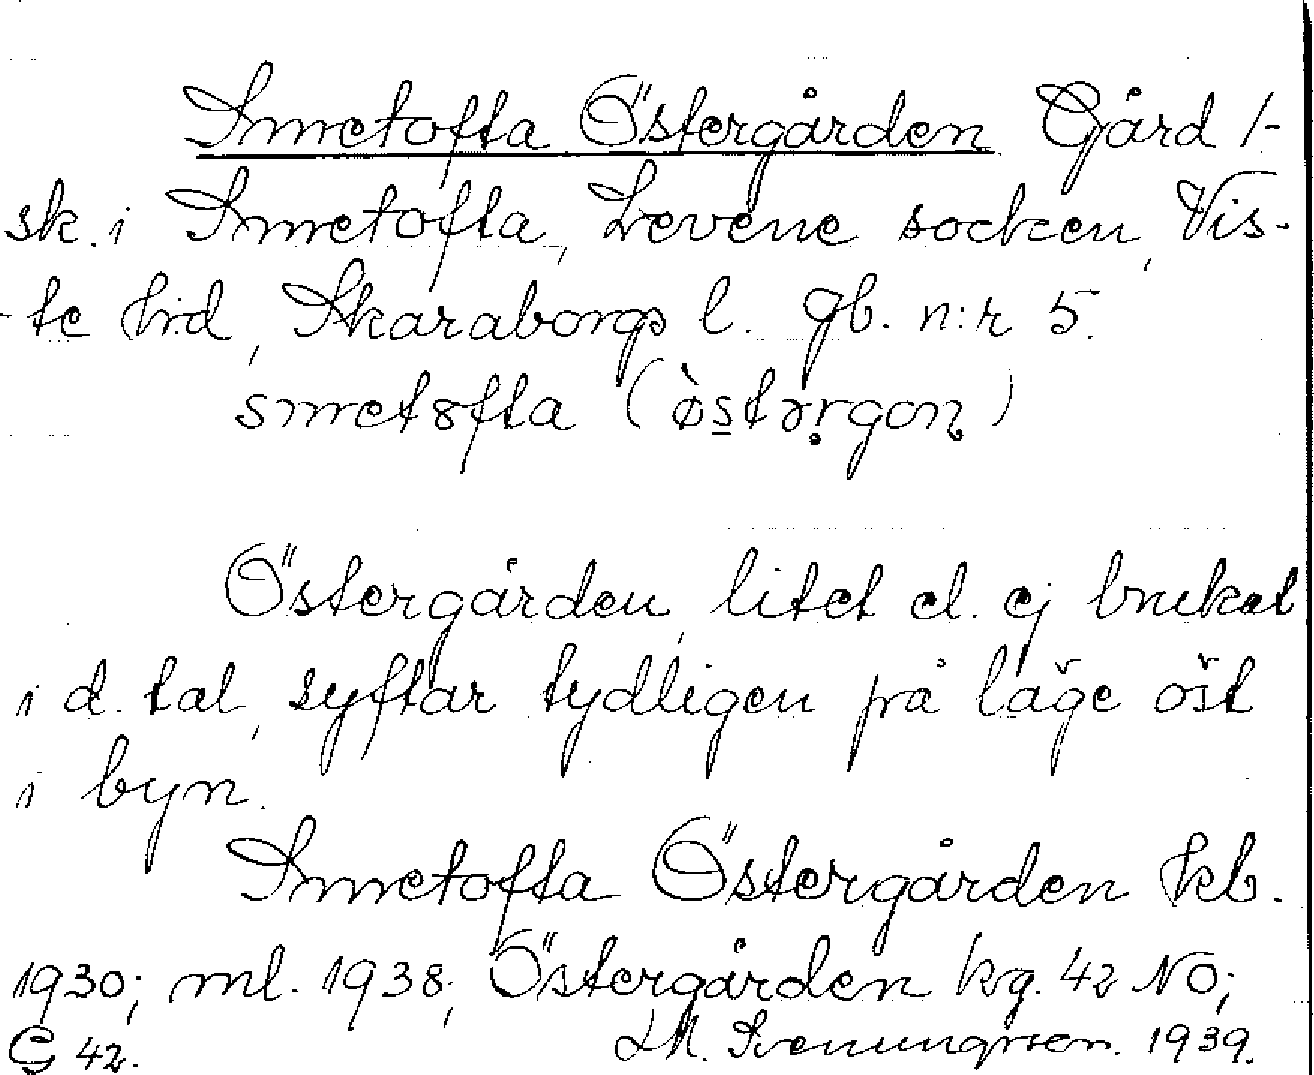 Smetofta Östergården Gård 1-
sk. i Smetofta, Levene socken, Vis-
-te hd, Skaraborgs l. gb. n:r 5.
smetofta (òstərgoɳ)
Östergården, litet el. ej brukat
i d. tal, syftar tydligen på läge öst
i byn.
Smetofta Östergården kb.
1930; ml. 1938; Östergården kg. 42 NO;
G 42.
LM. Svenungsson. 1939.